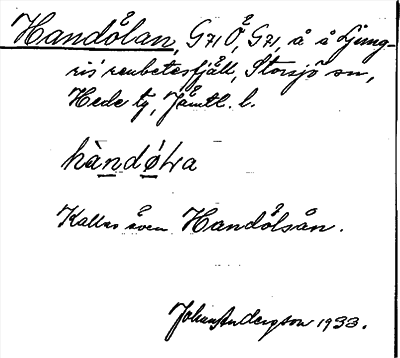 Handölan, G71 Ö, G21, å å Ljung-
ris' renbetesfjäll, Storsjö sn,
Hede tg, Jämtl. l.
hàndǿLa
Kallas även Handölsån.
Johan Anderzson 1933.